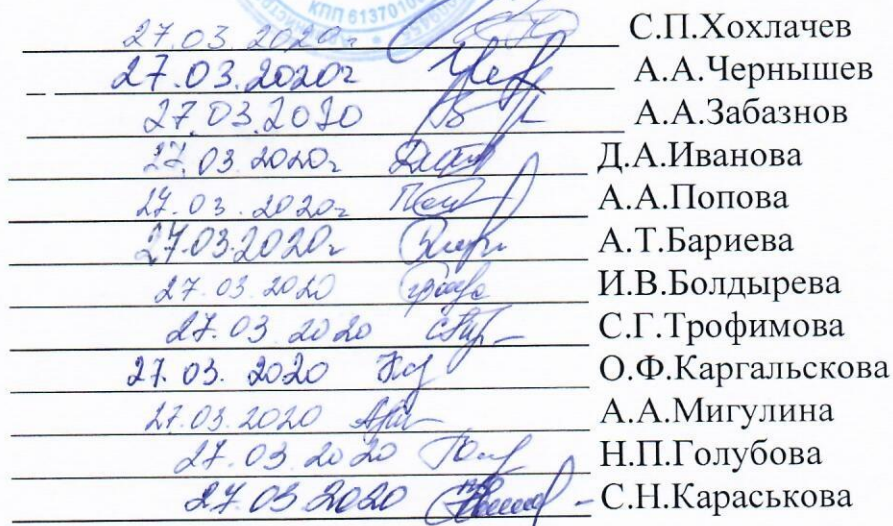 КПП 6137010
27.03.2020г С.П.Хохлачев
27.03.2020г А.А.Чернышев
27.03.2020 А.А.Забазнов
27.03.2020г Д.А.Иванова
27.03.2020г А.А.Попова
27.03.2020г А.Т.Бариева
27.03.2020 И.В.Болдырева
27.03.2020 С.Г.Трофимова
27.03.2020 О.Ф.Каргальскова
27.03.2020 А.А.Мигулина
27.03.2020 Н.П.Голубова
27.03.2020 - С.Н.Караськова